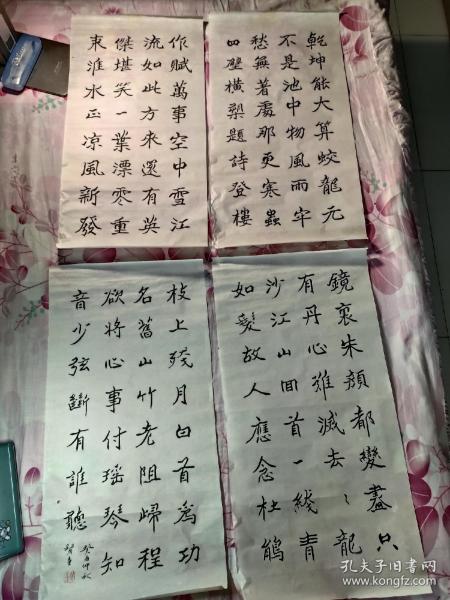 乾坤能大算蛟龍元
不是池中物風雨牢
愁無著處那更寒蟲
四壁橫槊題詩登樓
作賦萬事空中雪江
流如此方來還有英
傑堪笑一葉漂零重
東淮水正凉風新發
鏡裏朱顏都變盡只
有丹心難滅去〻龍
沙江山回首一綫青
如髮故人應念杜鵑
枝上殘月白首為功
名舊山竹老阻歸程
欲將心事付瑶琴知
音少弦斷有誰聽
仲秋
孔夫子旧书网